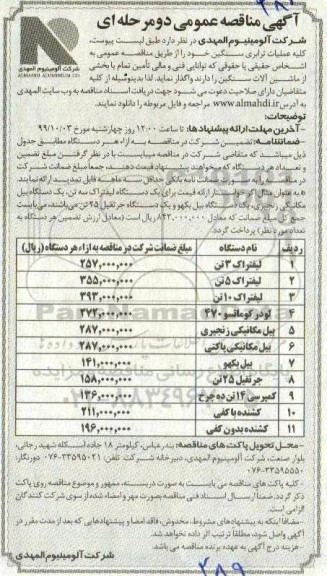 آگهی مناقصه عمومی دو مرحله ای
شرکت آلومینیوم المهدی
ALMAHDI ALUMINIUM CO.
شرکت آلومینیوم المهدی در نظر دارد طبق لیست پیوست،
کلیه عملیات ترابری سنگین خود را از طریق مناقصه عمومی به
اشخاص حقیقی یا حقوقی که توانایی فنی و مالی تأمین تمام یا بخشی
از ماشین آلات سنگین را دارند واگذار نماید. لذا بدینوسیله از کلیه
متقاضیان دارای صلاحیت دعوت می شود جهت دریافت اسناد مناقصه به وب سایت المهدی
به آدرس www.almahdi.ir مراجعه و فایل مربوطه را دانلود نمایند.
توضیحات:
-آخرین مهلت ارائه پیشنهادها: تا ساعت ۱۲:۰۰ روز چهارشنبه مورخ ۹۹/۱۰/۰۳
-ضمانتنامه: تضمین شرکت در مناقصه به ازاء هر دستگاه مطابق جدول
ذیل میباشد که متقاضی شرکت در مناقصه میبایست با در نظر گرفتن مبلغ تضمین
و تعداد هر دستگاه که میخواهند پیشنهاد قیمت دهند، جمعا مبلغ ضمانت شرکت
در مناقصه را به صورت ضمانت نامه بانکی حداقل سه ماهه قابل تمدید ارائه نمایند.
جمع کل مبلغ ضمانت که معادل ۸۴۳,۰۰۰,۰۰۰ ریال است (معادل ارزش تضمین هر دستگاه به
تعداد مورد نظر) پرداخت گردد.
ردیف نام دستگاه مبلغ ضمانت شرکت در مناقصه به ازاء هر دستگاه (ریال)
۱ لیفتراک ۳ تن ۲۵۷,۰۰۰,۰۰۰
۲ لیفتراک ۵ تن ۳۵۵,۰۰۰,۰۰۰
۳ لیفتراک ۱۰ تن ۳۹۳,۰۰۰,۰۰۰
۴ لودر کوماتسو ۴۷۰ ۲۷۲,۰۰۰,۰۰۰
۵ بیل مکانیکی زنجیری ۲۸۷,۰۰۰,۰۰۰
۶ بیل مکانیکی پاکتی ۲۸۷,۰۰۰,۰۰۰
۷ بیل بکهو ۱۴۱,۰۰۰,۰۰۰
۸ جرثقیل ۲۵ تن ۱۵۸,۰۰۰,۰۰۰
۹ کمپرسی ۱۴ تن ده چرخ ۱۳۶,۰۰۰,۰۰۰
۱۰ کشنده با کفی ۲۱۱,۰۰۰,۰۰۰
۱۱ کشنده بدون کفی ۱۹۶,۰۰۰,۰۰۰
-محل تحویل پاکت های مناقصه: بندرعباس، کیلومتر ۱۸ جاده اسکله شهید رجائی،
بلوار صنعت، شرکت آلومینیوم المهدی، دبیرخانه شرکت تلفن: ۰۷۶-۳۳۵۹۵۰۲۱ دورنگار:
۰۷۶-۳۳۵۹۵۵۵۰
- کلیه پاکت های مناقصه می بایست به صورت دربسته، ممهور و موضوع مناقصه روی پاکت
ذکر گردد. ضمنا ارسال اسناد فنی مناقصه بصورت مهر و امضاء شده از سوی شرکت کنندگان
الزامی است.
-مضافا اینکه به پیشنهادهای مشروط، مخدوش، فاقد امضا و پیشنهادهایی که بعد از مدت مقرر در
آگهی واصل شود، مطلقاً ترتیب اثر داده نخواهد شد.
-هزینه درج آگهی به عهده برنده مناقصه می باشد.
شرکت آلومینیوم المهدی
۲۸۹